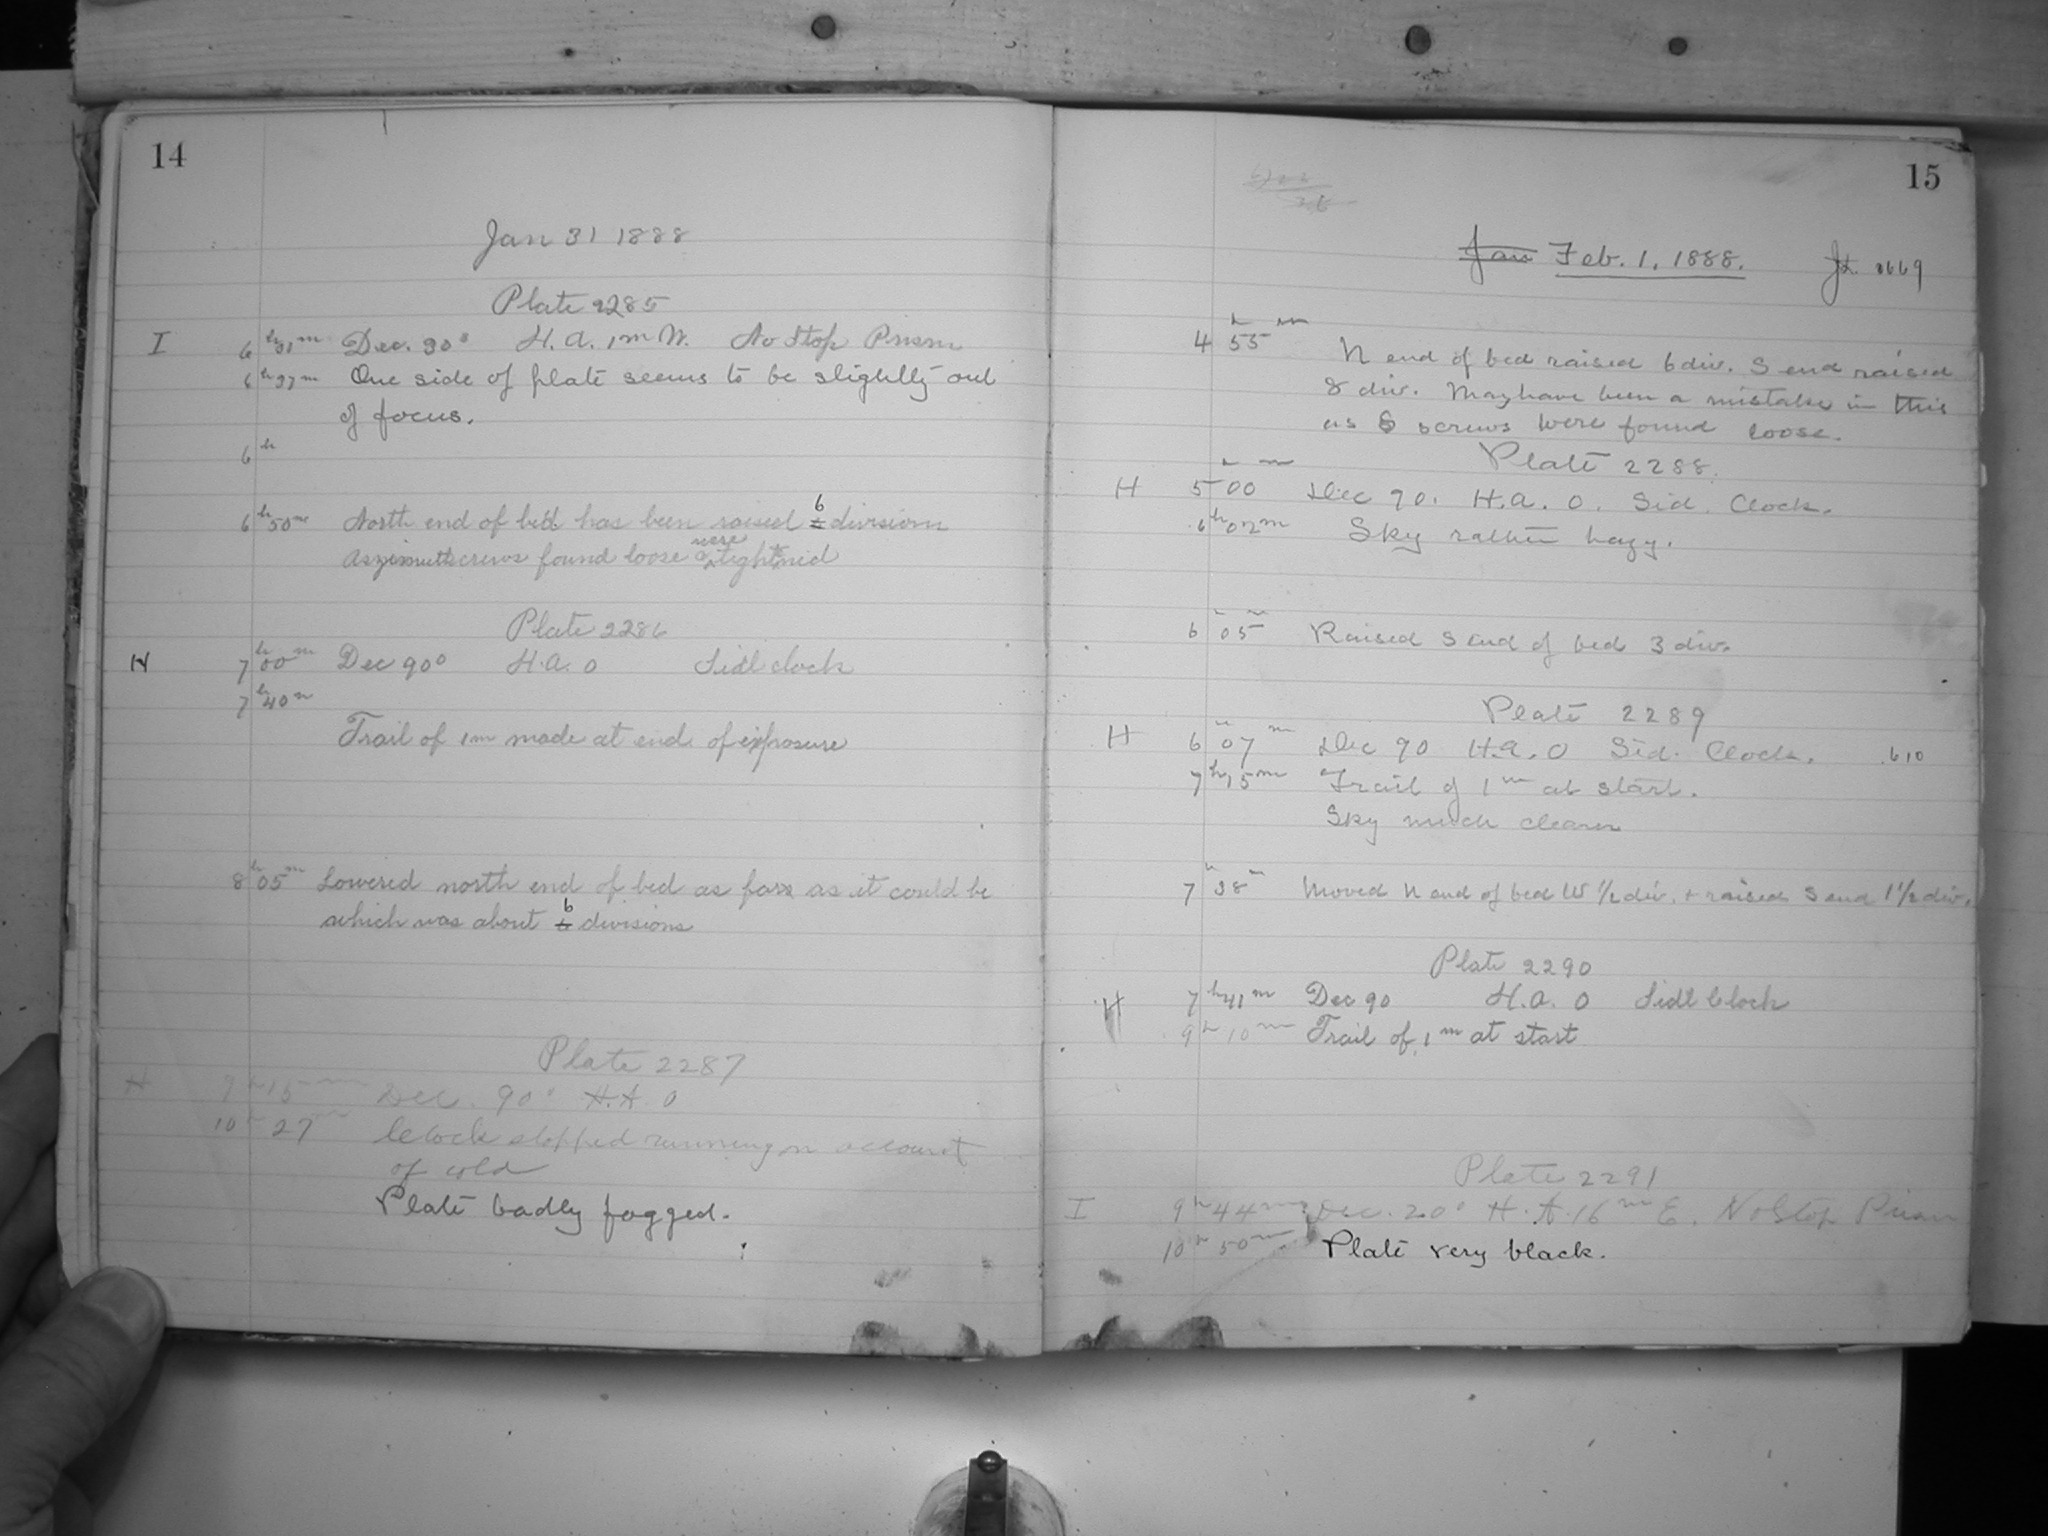 14
Jan 31 1888
Plate 2285
I 6h 31m Dec. 30° H. A. 1m W. No Stop Prism
6h 37m One side of plate seems to be slightly out
of focus.
6h
6h 50m North end of bed has been raised 6 divisions
Aszimuth screws found loose were tightnid
Plate 2286
H 7h 00m Dec 90° H.A. 0 Sidl clock
7h 40m
Trail of 1m made at end of exposure
8h 05m Lowered north end of bed as far as it could be
which was about 6 divisions
Plate 2287
H 9h 15m Dec. 90° H.A 0
10h 27m Clock stopped running on account
of cold
Plate badly fogged.
15
Jan Feb. 1, 1888.
4h 55m N end of bed raised 6 div. S end raised
8 div. May have been a mistake in this
as 6 screws were found loose.
Plate 2288.
H 5h 00m Dec 90. H.A. 0. Sid. Clock.
6h 02m Sky rather hazy.
6h 05m Raised S end of bed 3 div.
Plate 2289
H 6h 07m Dec 90 H.A. 0 Sid. Clock. .610
7h 15m Trail of 1m at start.
Sky much clearer
7h 38m Moved N end of bed W 1/2 div. + raised S end 1 1/2 div.
Plate 2290
H 7h 41m Dec 90 H.A. 0 Sidl Clock
9h 10m Trail of 1m at start
Plate 2291
I 9h 44m Dec. 20° H.A. 16m E. No Stop Prism
10h 50m Plate very black.